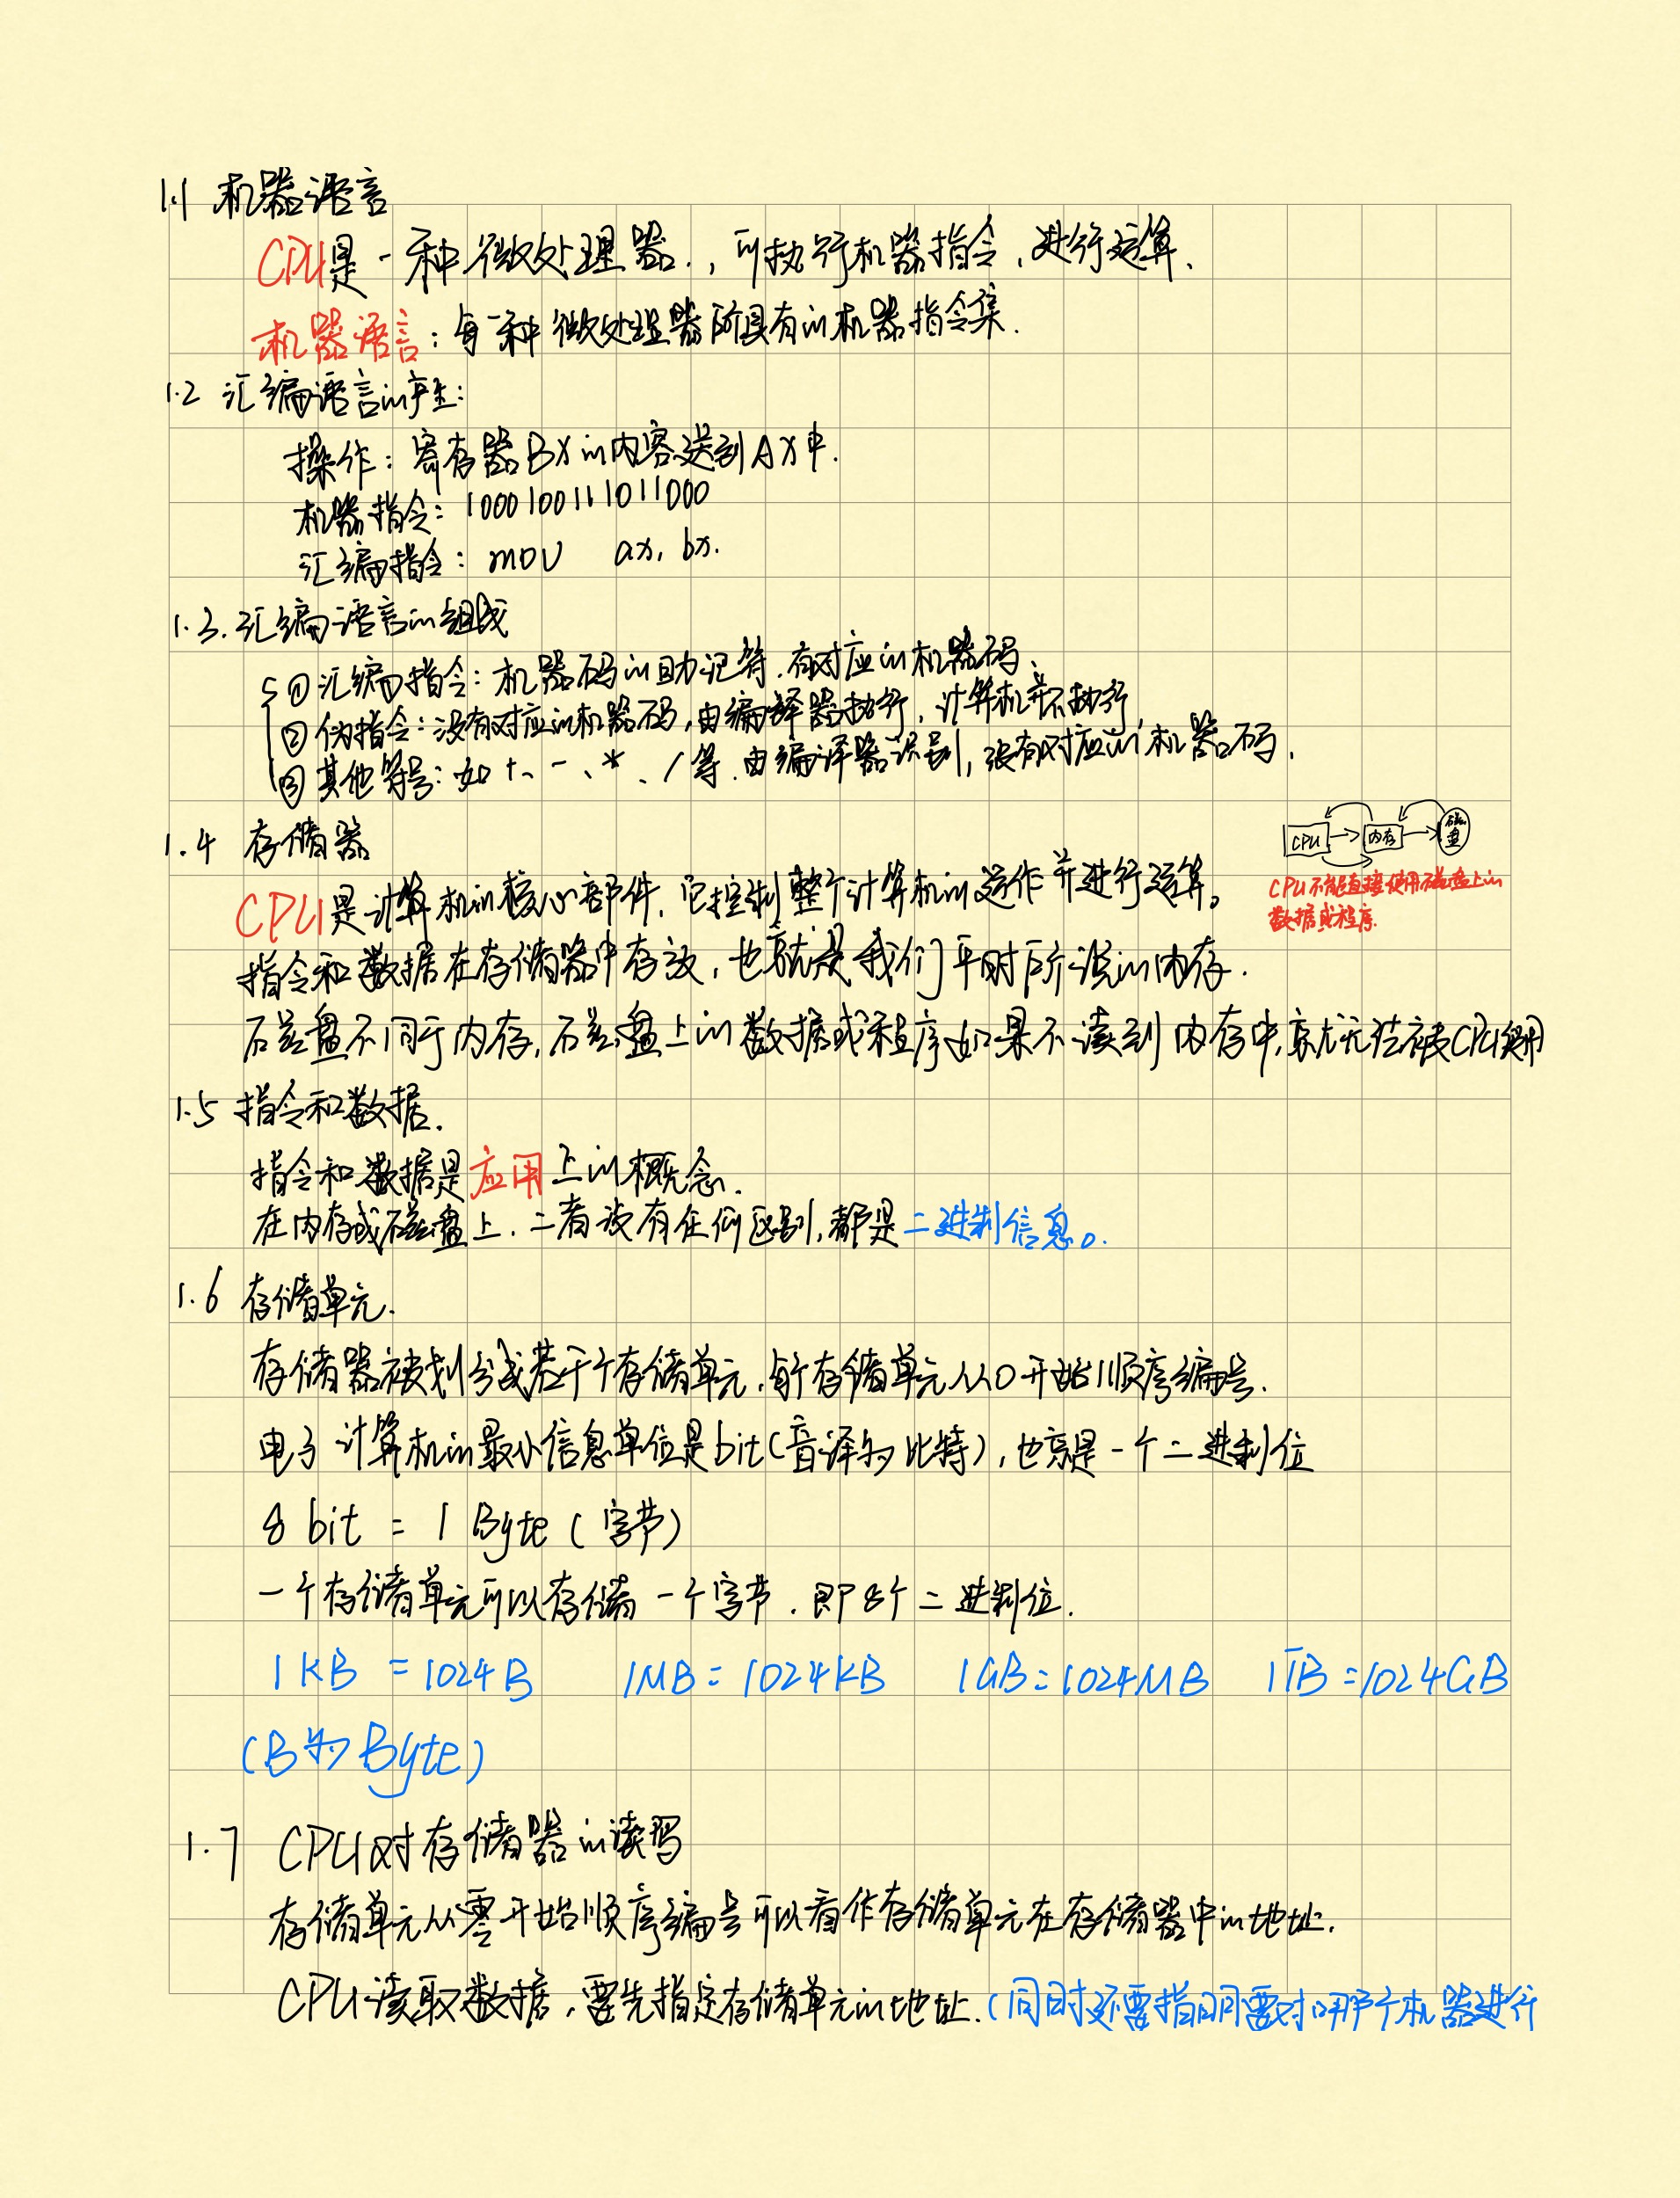 1.1 机器语言
CPU是一种微处理器.，可执行机器指令、进行运算、
机器语言：每一种微处理器所具有的机器指令集.
1.2 汇编语言的产生：
操作：寄存器BX的内容送到AX中.
机器指令：1000100111011000
汇编指令：mov ax, bx.
1.3.汇编语言的组成
①汇编指令：机器码的助记符.有对应的机器码、
②伪指令：没有对应的机器码,由编译器执行,计算机并不执行
③其他符号：如+、-、*、/等.由编译器识别,没有对应的机器码.
1.4 存储器
CPU 内存 磁盘
CPU不能直接使用磁盘上的
数据或程序.
CPU是计算机的核心部件,它控制整个计算机的运作并进行运算。
指令和数据在存储器中存放,也就是我们平时所说的内存.
磁盘不同于内存,磁盘上的数据或程序如果不读到内存中,就无法被CPU使用
1.5 指令和数据.
指令和数据是应用上的概念.
在内存或磁盘上.二者没有任何区别,都是二进制信息。.
1.6 存储单元.
存储器被划分成若干个存储单元,每个存储单元从0开始顺序编号.
电子计算机的最小信息单位是bit(音译为比特),也就是一个二进制位
8 bit = 1 Byte (字节)
一个存储单元可以存储一个字节.即8个二进制位.
1KB =1024B 1MB=1024KB 1GB=1024MB 1TB=1024GB
(B为Byte)
1.7 CPU对存储器的读写
存储单元从零开始顺序编号可以看作存储单元在存储器中的地址.
CPU读取数据,要先指定存储单元的地址.(同时还要指明要对哪个机器进行